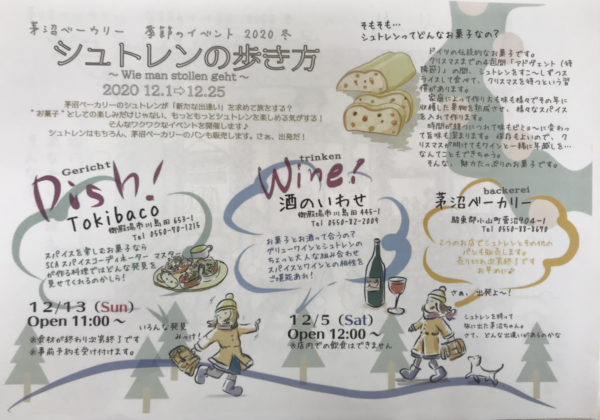 茅沼ベーカリー 季節のイベント 2020 冬
シュトレンの歩き方
～ Wie man stollen geht ～
2020 12.1⇨12.25
茅沼ベーカリーのシュトレンが「新たな出逢い」を求めて旅をする?
"お菓子"としての楽しみだけじゃない、もっともっとシュトレンを楽しめる気がする!
そんなワクワクなイベントを開催します♪
シュトレンはもちろん、茅沼ベーカリーのパンも販売します。さぁ、出発だ!
そもそも…
シュトレンってどんなお菓子なの?
ドイツの伝統的なお菓子です。
クリスマスまでの4週間「アドヴェント(待
降節)」の間、シュトレンをすこ～しずつス
ライスして食べて、クリスマスを待つという習
慣があります。
家庭によって作り方も味も様々でその年に
収穫した果物を熟成させ、様々なスパイス
を入れて作ります。
時間が経つにつれて味もどんどんに変わっ
て旨味も深まります。保存もよいので、ク
リスマスが明けてもワインと一緒に年越しを…
なんてこともできちゃう。
そんな、魅力たっぷりのお菓子です。
Gericht
Dish!
Tokibaco
御殿場市川島田 653-1
Tel 0550-90-1215
スパイスを楽しむお菓子なら
SCA スパイスコーディネーター マスター
が作る料理ではどんな発見を
見せてくれるのかしら!
12/13 (Sun)
Open 11:00～
※食材が終わり次第終了です
※事前予約も受け付けます。
いろんな発見
みっけ!
trinken
Wine!
酒のいわせ
御殿場市川島田 445-1
Tel 0550-82-2009
お菓子とお酒って合うの?
グリューワインとシュトレンの
ちょっと大人な組み合わせ
スパイスとワインとの相性を
ご堪能あれ!
12/5 (Sat)
Open 12:00～
※店内での飲食はできません
backerei
茅沼ベーカリー
駿東郡小山町菅沼904-1
Tel 0550-88-8690
2つのお店でシュトレンとその他の
パンも販売します。
売り切れ次第終了です
お早めに☆
さぁ、出発よ～!
シュトレンを持って
旅に出た茅沼ちゃん。
さて、どんな出逢いがあるのかな